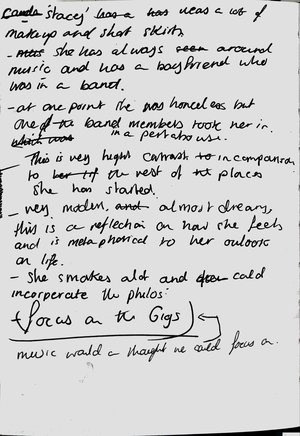 Stacey' has a wears a lot of
makeup and short skirts
- she has always around
music and has a boyfriend who
was in a band.
- at one point she was homeless but
one of the band members took her in.
in a penthouse.
This is very hight contrast to in comparison
to the rest of the places
she has started.
- very modern, almost dreamy,
this is a reflection on how she feels
and is metaphorical to her outlook
on life.
- She smokes alot and could
incorporate the photos:
focus on the Gigs
music world a thought we could focus on.